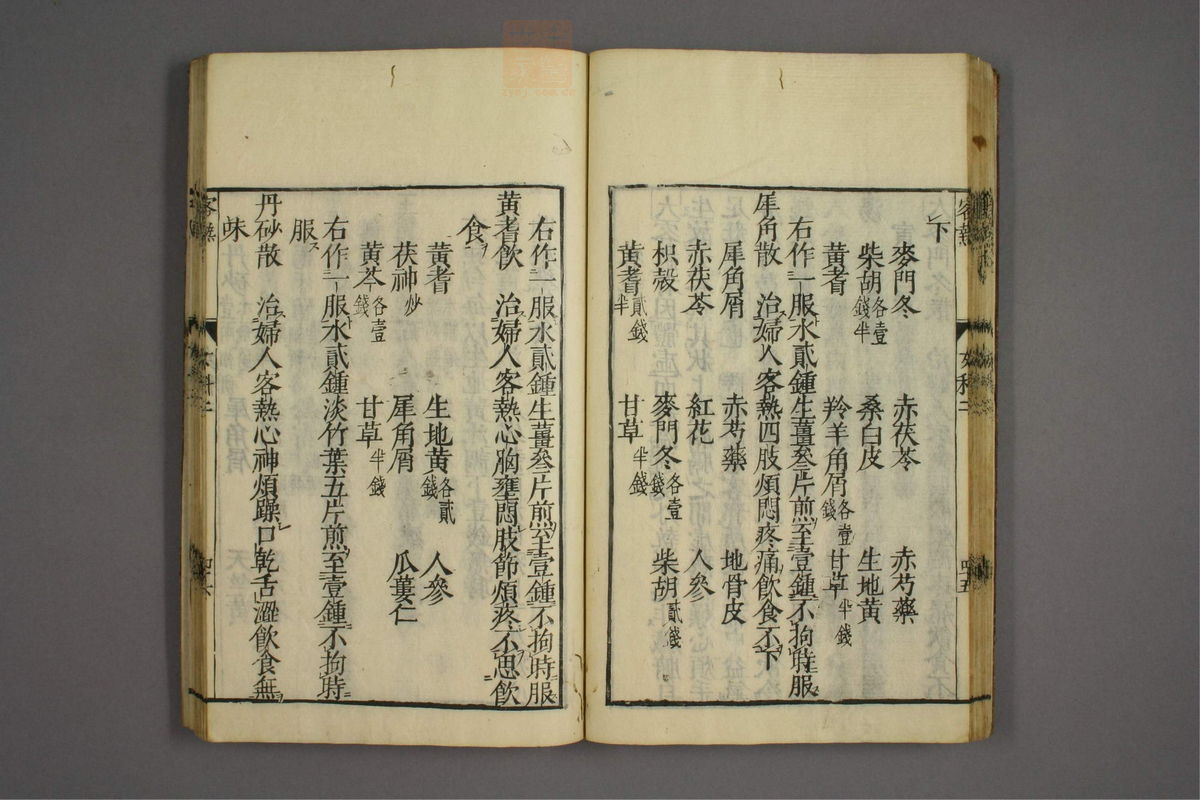 下
麥門冬 赤茯苓 赤芍藥
柴胡各壹錢半 桑白皮 生地黃
黃耆 羚羊角屑各壹錢 甘草半錢
右作一服水貳鍾生薑叄片煎至壹鍾不拘時服
犀角散 治婦人客熱四肢煩悶疼痛飲食不下
犀角屑 赤芍藥 地骨皮
赤茯苓 紅花 人參
枳殼貳錢 麥門冬各壹錢 柴胡貳錢
黃耆半 甘草半錢
右作一服水貳鍾生薑叄片煎至壹鍾不拘時服
黃耆飲 治婦人客熱心胸壅悶肢節煩疼不思飲
食
黃耆 生地黃各貳錢 人參
茯神炒 犀角屑 瓜蔞仁
黃芩各壹錢 甘草半錢
右作一服水貳鍾淡竹葉五片煎至壹鍾不拘時
服
丹砂散 治婦人客熱心神煩躁口乾舌澀飲食無
味
女科二
四五
四六